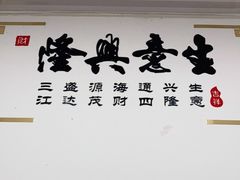 财
生意興隆
生意
兴隆
通四
海财
源茂
盛达
三江
吉祥